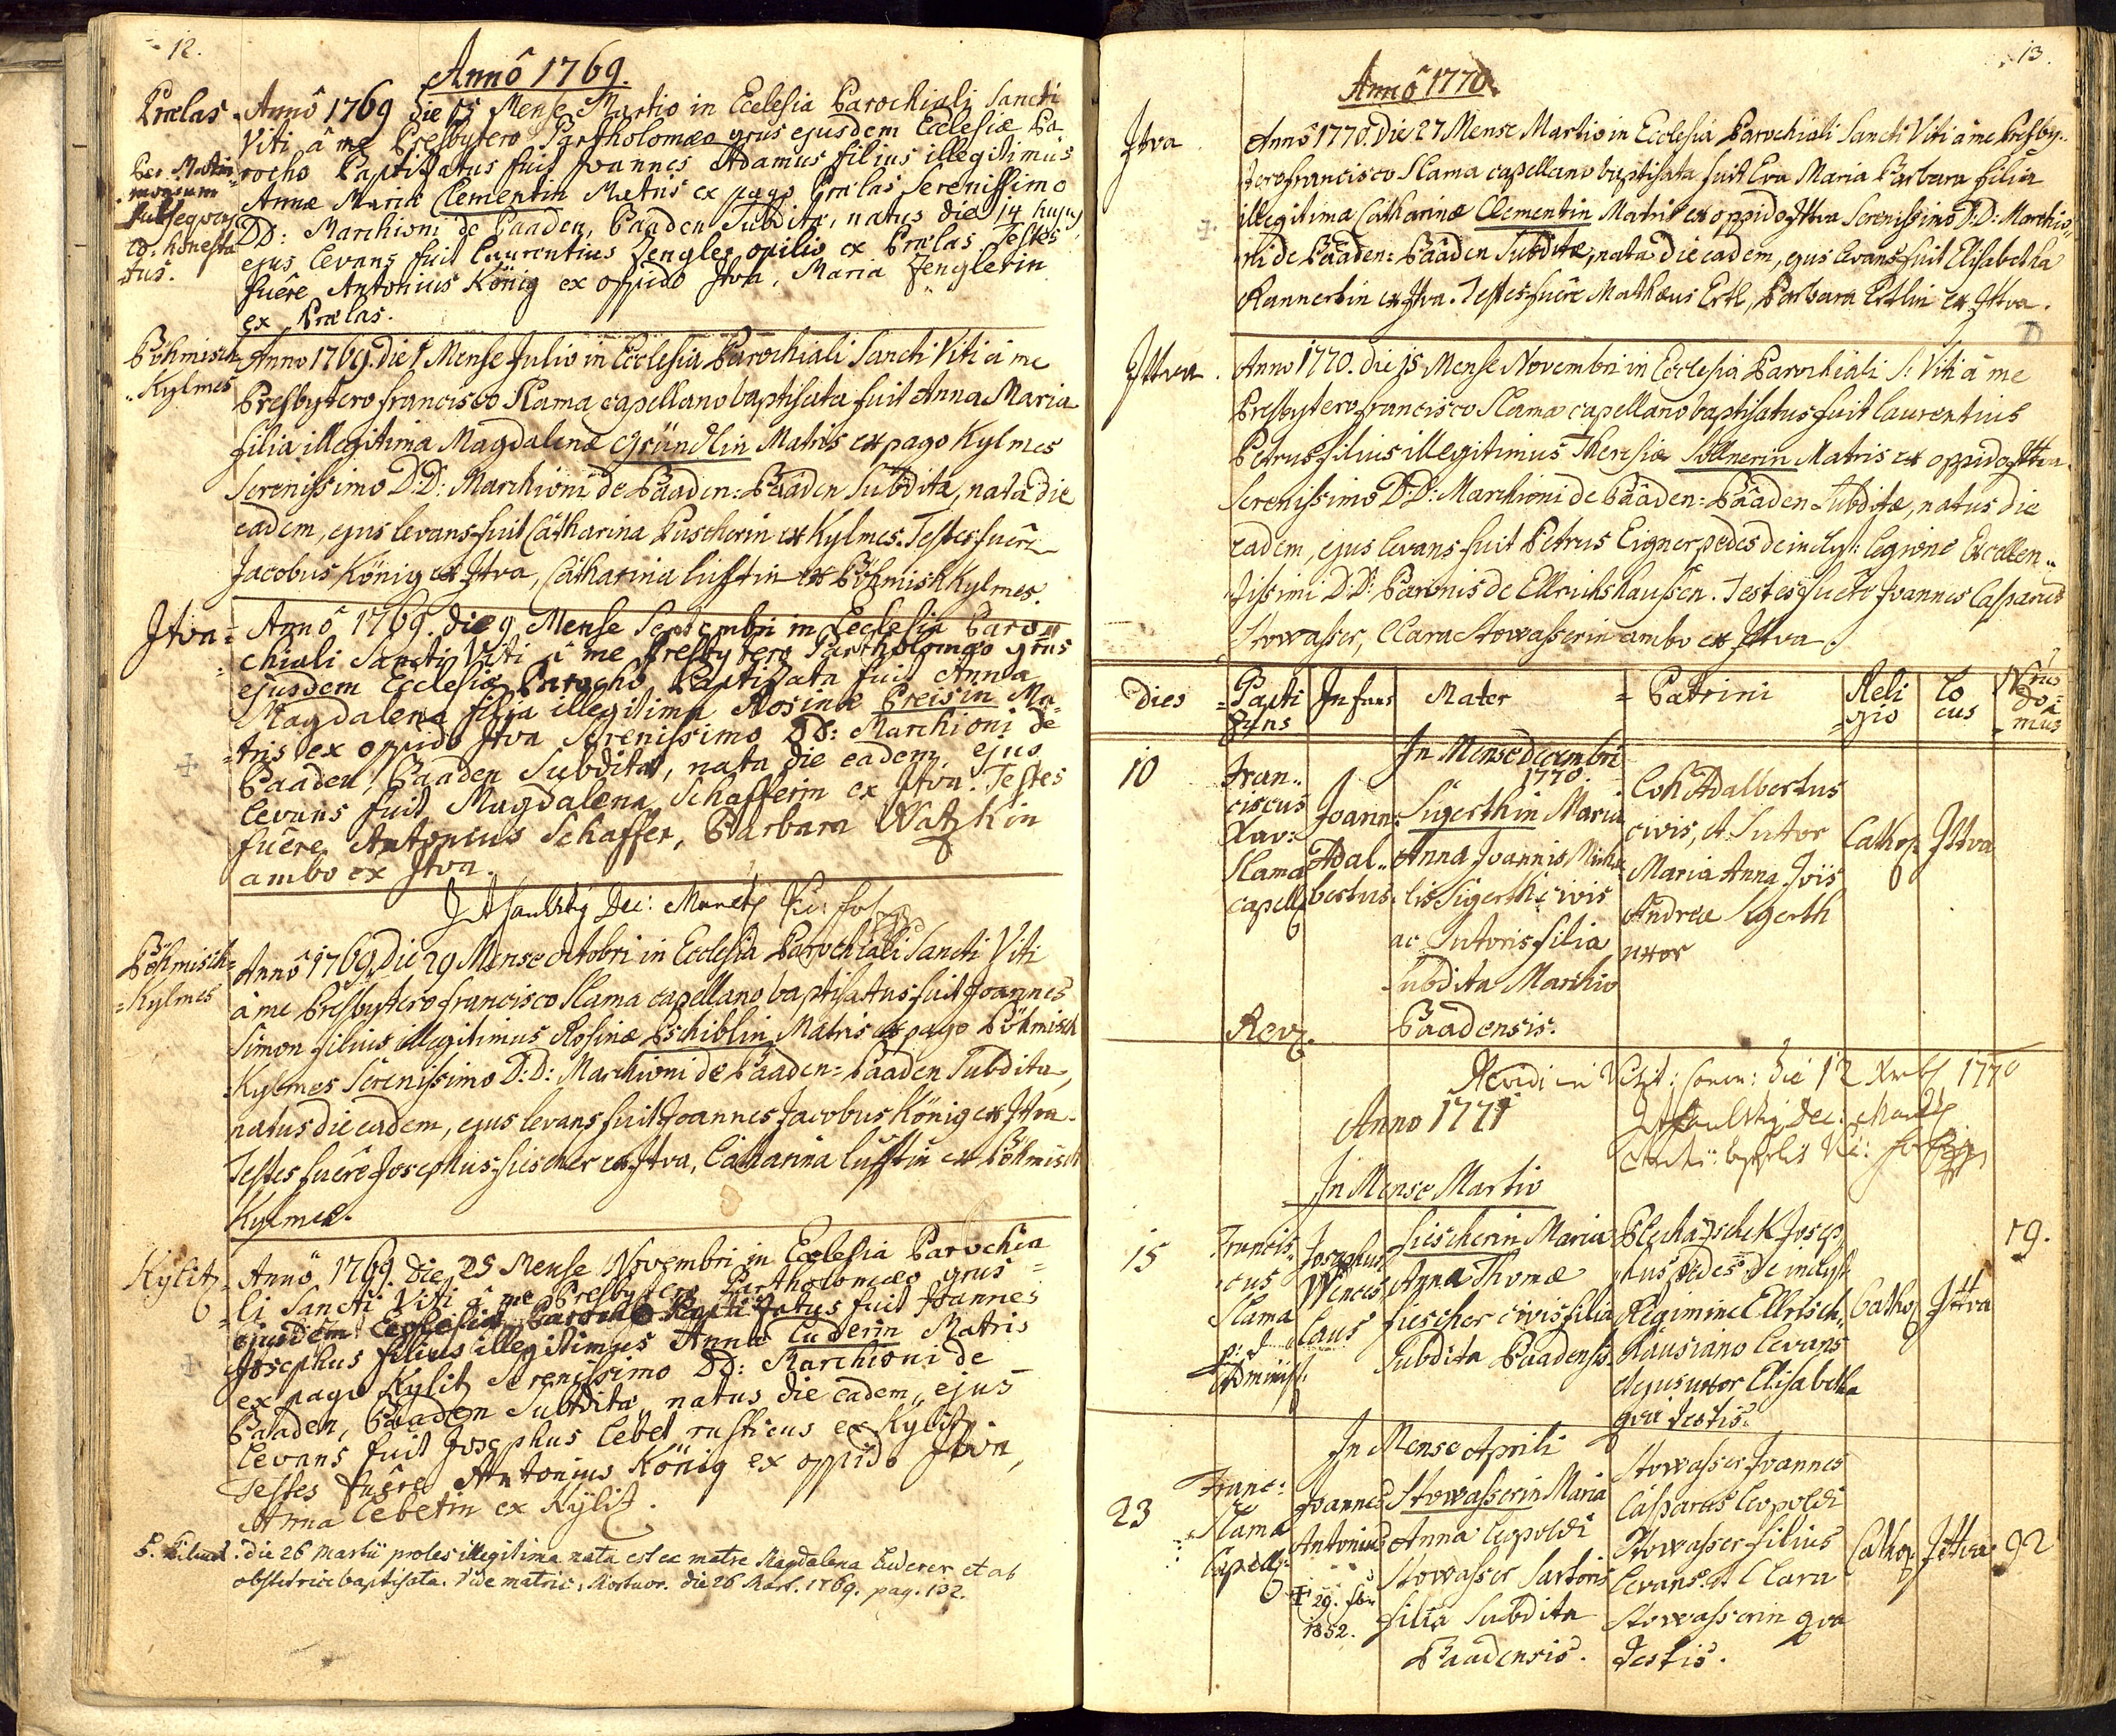 12.
Annô 1769.
Prælas. Annô 1769 die 15 Mense Martio in Ecclesia Parochiali Sancti
Viti â me Presbytero Partholomæo grus ejusdem Ecclesiæ Pa-
rocho Paptizatus fuit Joannes Adamus filius illegitimus
Annæ Mariæ Clementin Matris ex pago Prælas Serenissimo
DD: Marchioni de Paaden, Paaden Subditæ, natus die 14 hujus
ejus levans fuit Laurentius Zengler opilio ex Prælas Testes
fuêre Antonius König ex oppido Itva, Maria Zenglerin
ex Prælas.
Per Matri
monium
subseqvens
co-honesta
tus.
Böhmisch
Kylmes
Anno 1769. die 1 Mense Julio in Ecclesia Parochiali Sancti Viti â me
Presbytero francisco Slama capellano baptisata fuit Anna Maria
filia illegitima Magdalenæ Gründlin Matris ex pago Kylmes
Serenissimo D:D: Marchioni de Paaden=Paaden Subdita, nata die
eadem, ejus levans fuit Catharina Puscherin ex Kylmes. Testes fuêre
Jacobus König ex Itva, Catharina lüsstin ex Böhmisch Kylmes.
Itva= Annô 1769. die 9 Mense Septembri in Ecclesia Paro=
chiali Sancti Viti â me Presbytero Partholomæo grus
ejusdem Ecclesiæ Parocho Paptizata fuit Anna
Magdalena filia illegitima Rosinæ Preisin Ma=
tris ex oppido Itva Serenissimo DD: Marchioni de
Paaden, Paaden Subditæ, nata die eadem, ejus
levans fuit Magdalena Schafferin ex Itva. Testes
fuêre Antonius Schaffer, Barbara Watzkin
ambo ex Itva.
Böhmisch=
=Kylmes
Annô 1769. Die 29 Mense octobri in Ecclesia Parochiali Sancti Viti
â me Presbytero francisco Slama capellano baptisatus fuit Joannes
Simon filius illegitimus Rosinæ Pschiblin Matris ex pago Böhmisch
Kylmes Serenissimo D:D: Marchioni de Paaden=Paaden Subdita,
natus die eadem, ejus levans fuit Joannes Jacobus König ex Itva.
Testes fuêre Josephus fiescher ex Itva, Catharina lüsstin ex Böhmisch
Kylmes.
Kylitz= Annô 1769. Die 25 Mense Novembri in Ecclesia Parochia=
li Sancti Viti â me Presbytero Partholomæo grus
ejusdem Ecclesiæ Parocho Paptizatus fuit Joannes
Josephus filius illegitimus Annæ Luderin Matris
ex pago Kylitz Serenissimo DD: Marchioni de
Paaden, Paaden Subdita, natus die eadem, ejus
levans fuit Josephus Lebel rusticus ex Kylitz
Testes fuêre Antonius König ex oppido Itva,
Anna Lebetin ex Kylitz.
die 26 Martii proles illegitima nata est ex matre Magdalena Luderer et ab
obstetrice baptisata. Vide matric: Mortuor. die 26 Mart. 1769. pag. 132.
13.
Annô 1770.
Itva
Annô 1770. Die 27 Mense Martio in Ecclesia Parochiali Sancti Viti â me Presby-
tero francisco Slama capellano baptisata fuit Eva Maria Barbara filia
illegitima Catharinæ Clementin Matris ex oppido Ittva Serenissimo D:D: Marchio,,
ni de Paaden=Paaden Subditæ, nata die eadem, ejus levans fuit Elisabetha
Rannertin ex Itva. Testes fuêre Mathæus Ertl, Barbara Ertlin ex Ittva.
Ittva.
Anno 1770. die 15 Mense Novembri in Ecclesia Parochiali S: Viti â me
Presbytero francisco Slama capellano baptisatus fuit laurentius
Petrus filius illegitimus Theresiæ Söllnerin Matris ex oppido Ittva
Serenissimo D:D: Marchioni de Paaden=Paaden Subditæ, natus die
eadem, ejus levans fuit Petrus Eigner pedes de inclyt: legione Excellen,,
tissimi D:D: Baronis de Ellrichshaussen. Testes fuêre Joannes Casparus
Stowasser, Clara Stowasserin ambo ex Ittva.
Dies Papti zans Infans Mater Patrini Reli gio Lo cus Nrus do= mus
In Mense decembri
1770.
10
Fran,,
ciscus
Xav:
Slama
capell
Joann:
Adal,,
bertus.
Sigerthin Maria
Anna Joannis Micha
lis Sigerth civis
ac Sutoris filia
Subdita Marchio
Paadensis.
Adalbertus
civis, et Sutor
Maria Anna
Andreæ Sigerth
uxor
Cathol: Ittva
Revidi in die 12 1770
Anno 1771
In Mense Martio
15
Francis,,
cus
Slama
p: t
Administ.
Josephus
Wences
laus
fiescherin Maria
Anna Thomæ
fiescher civis filia
Subdita Paadensis.
Plechazschek Josep
hus pedes de inclyt
Regimine Ellrisch,,
hausiano levans
et ejus uxor Elisabetha
qvæ testis.
Cathol Ittva
19.
In Mense Aprili
23
Franc:
Slama
Capell:
Joannes
Antonius
† 29.
1852.
Stowasserin Maria
Anna leopoldi
Stowasser Sartoris
filia Subdita
Paadensis.
Stowasser Joannes
Casparus leopoldi
Stowasser filius
levans. et Clara
Stowasserin qva
testis.
Cathol: Ittva. 92